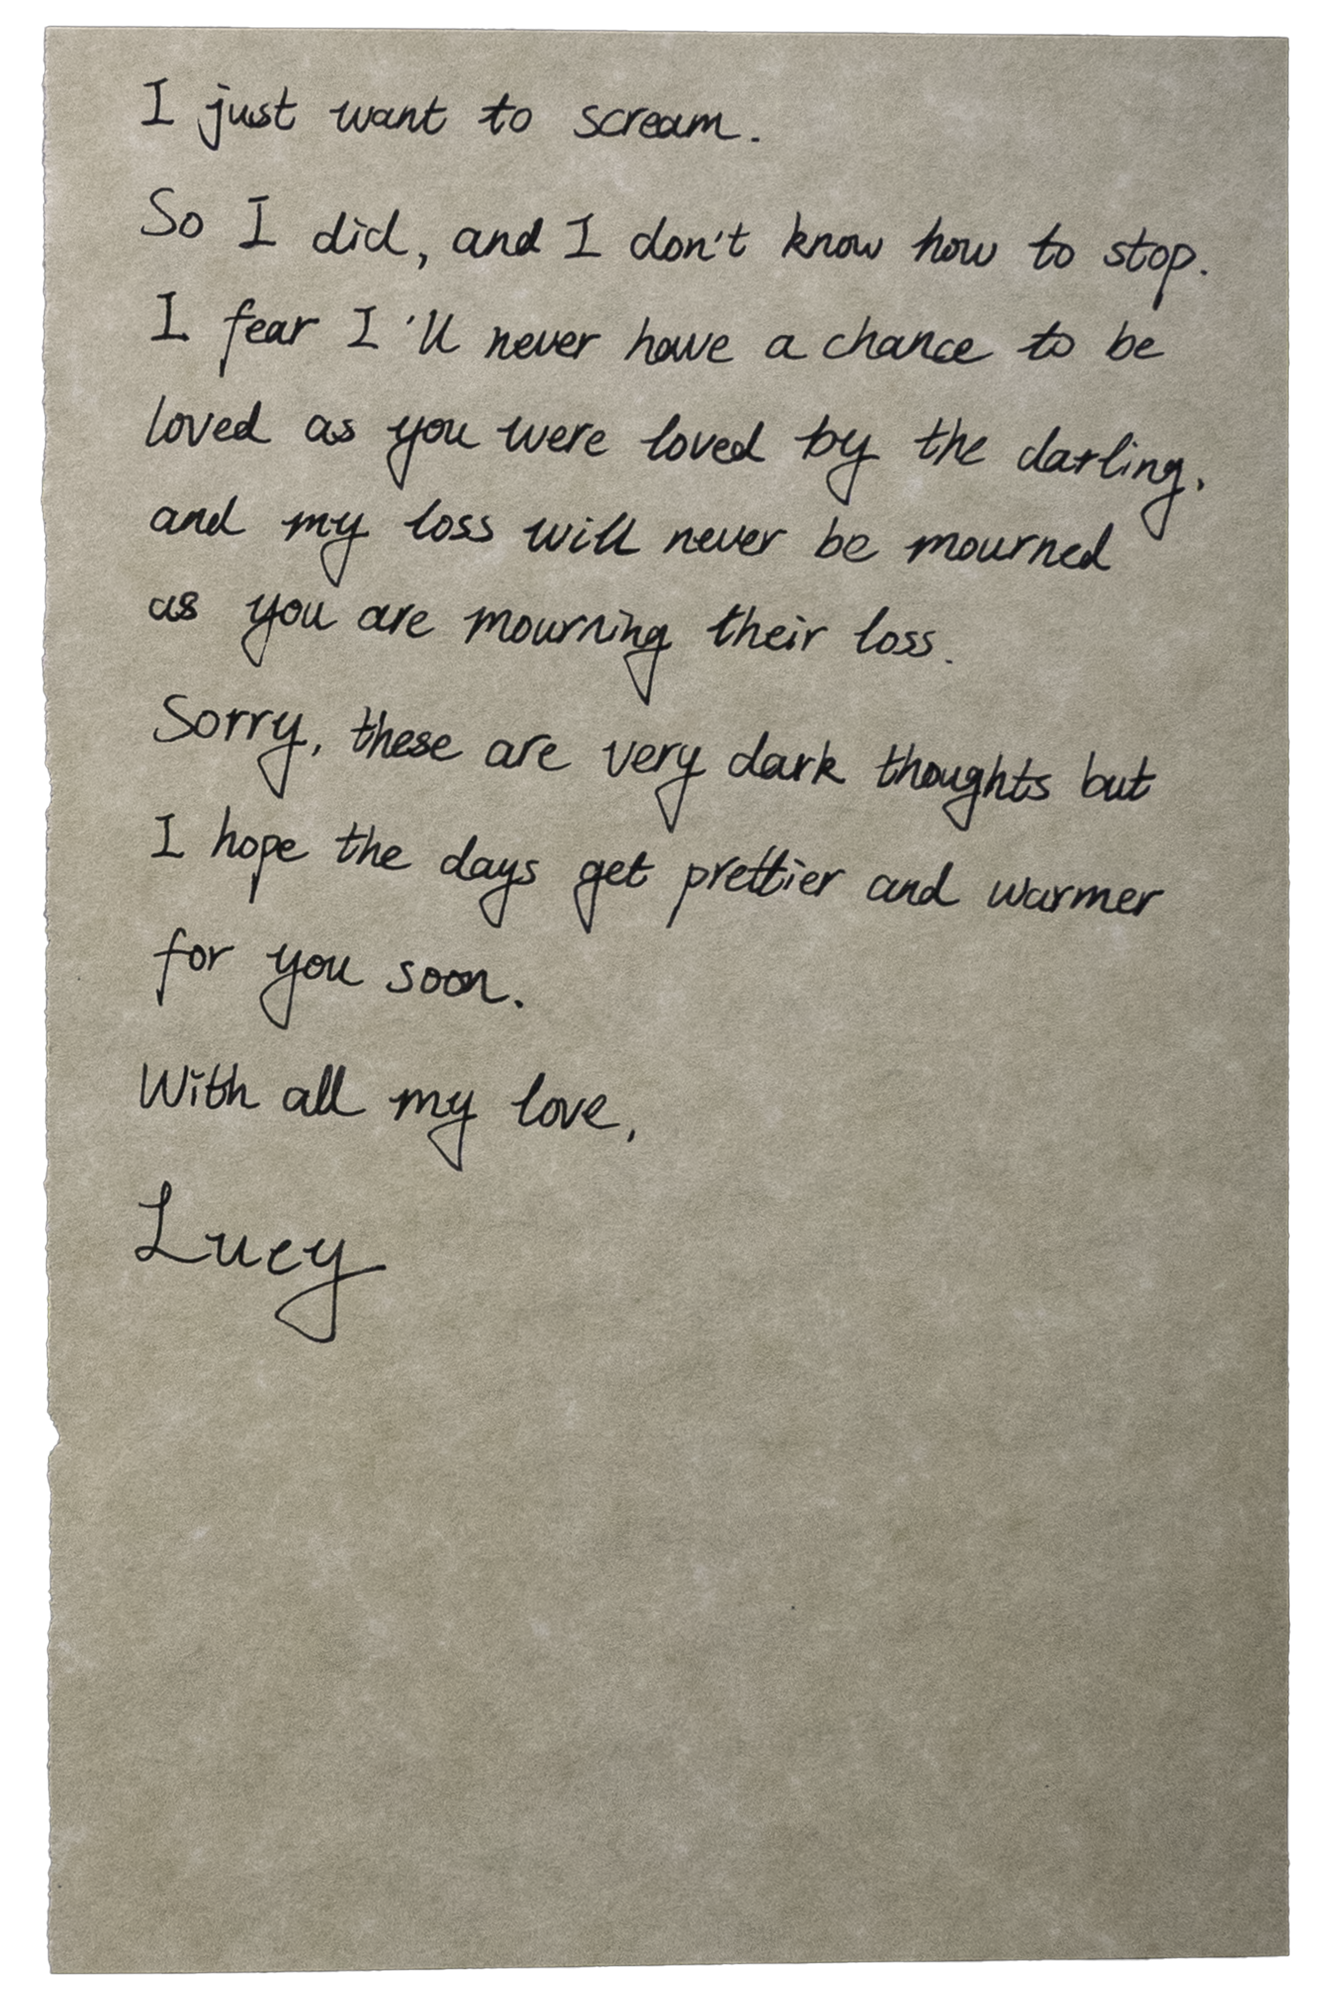 I just want to scream.
So I did, and I don't know how to stop.
I fear I'll never have a chance to be
loved as you were loved by the darling,
and my loss will never be mourned
as you are mourning their loss.
Sorry, these are very dark thoughts but
I hope the days get prettier and warmer
for you soon.
With all my love,
Lucy